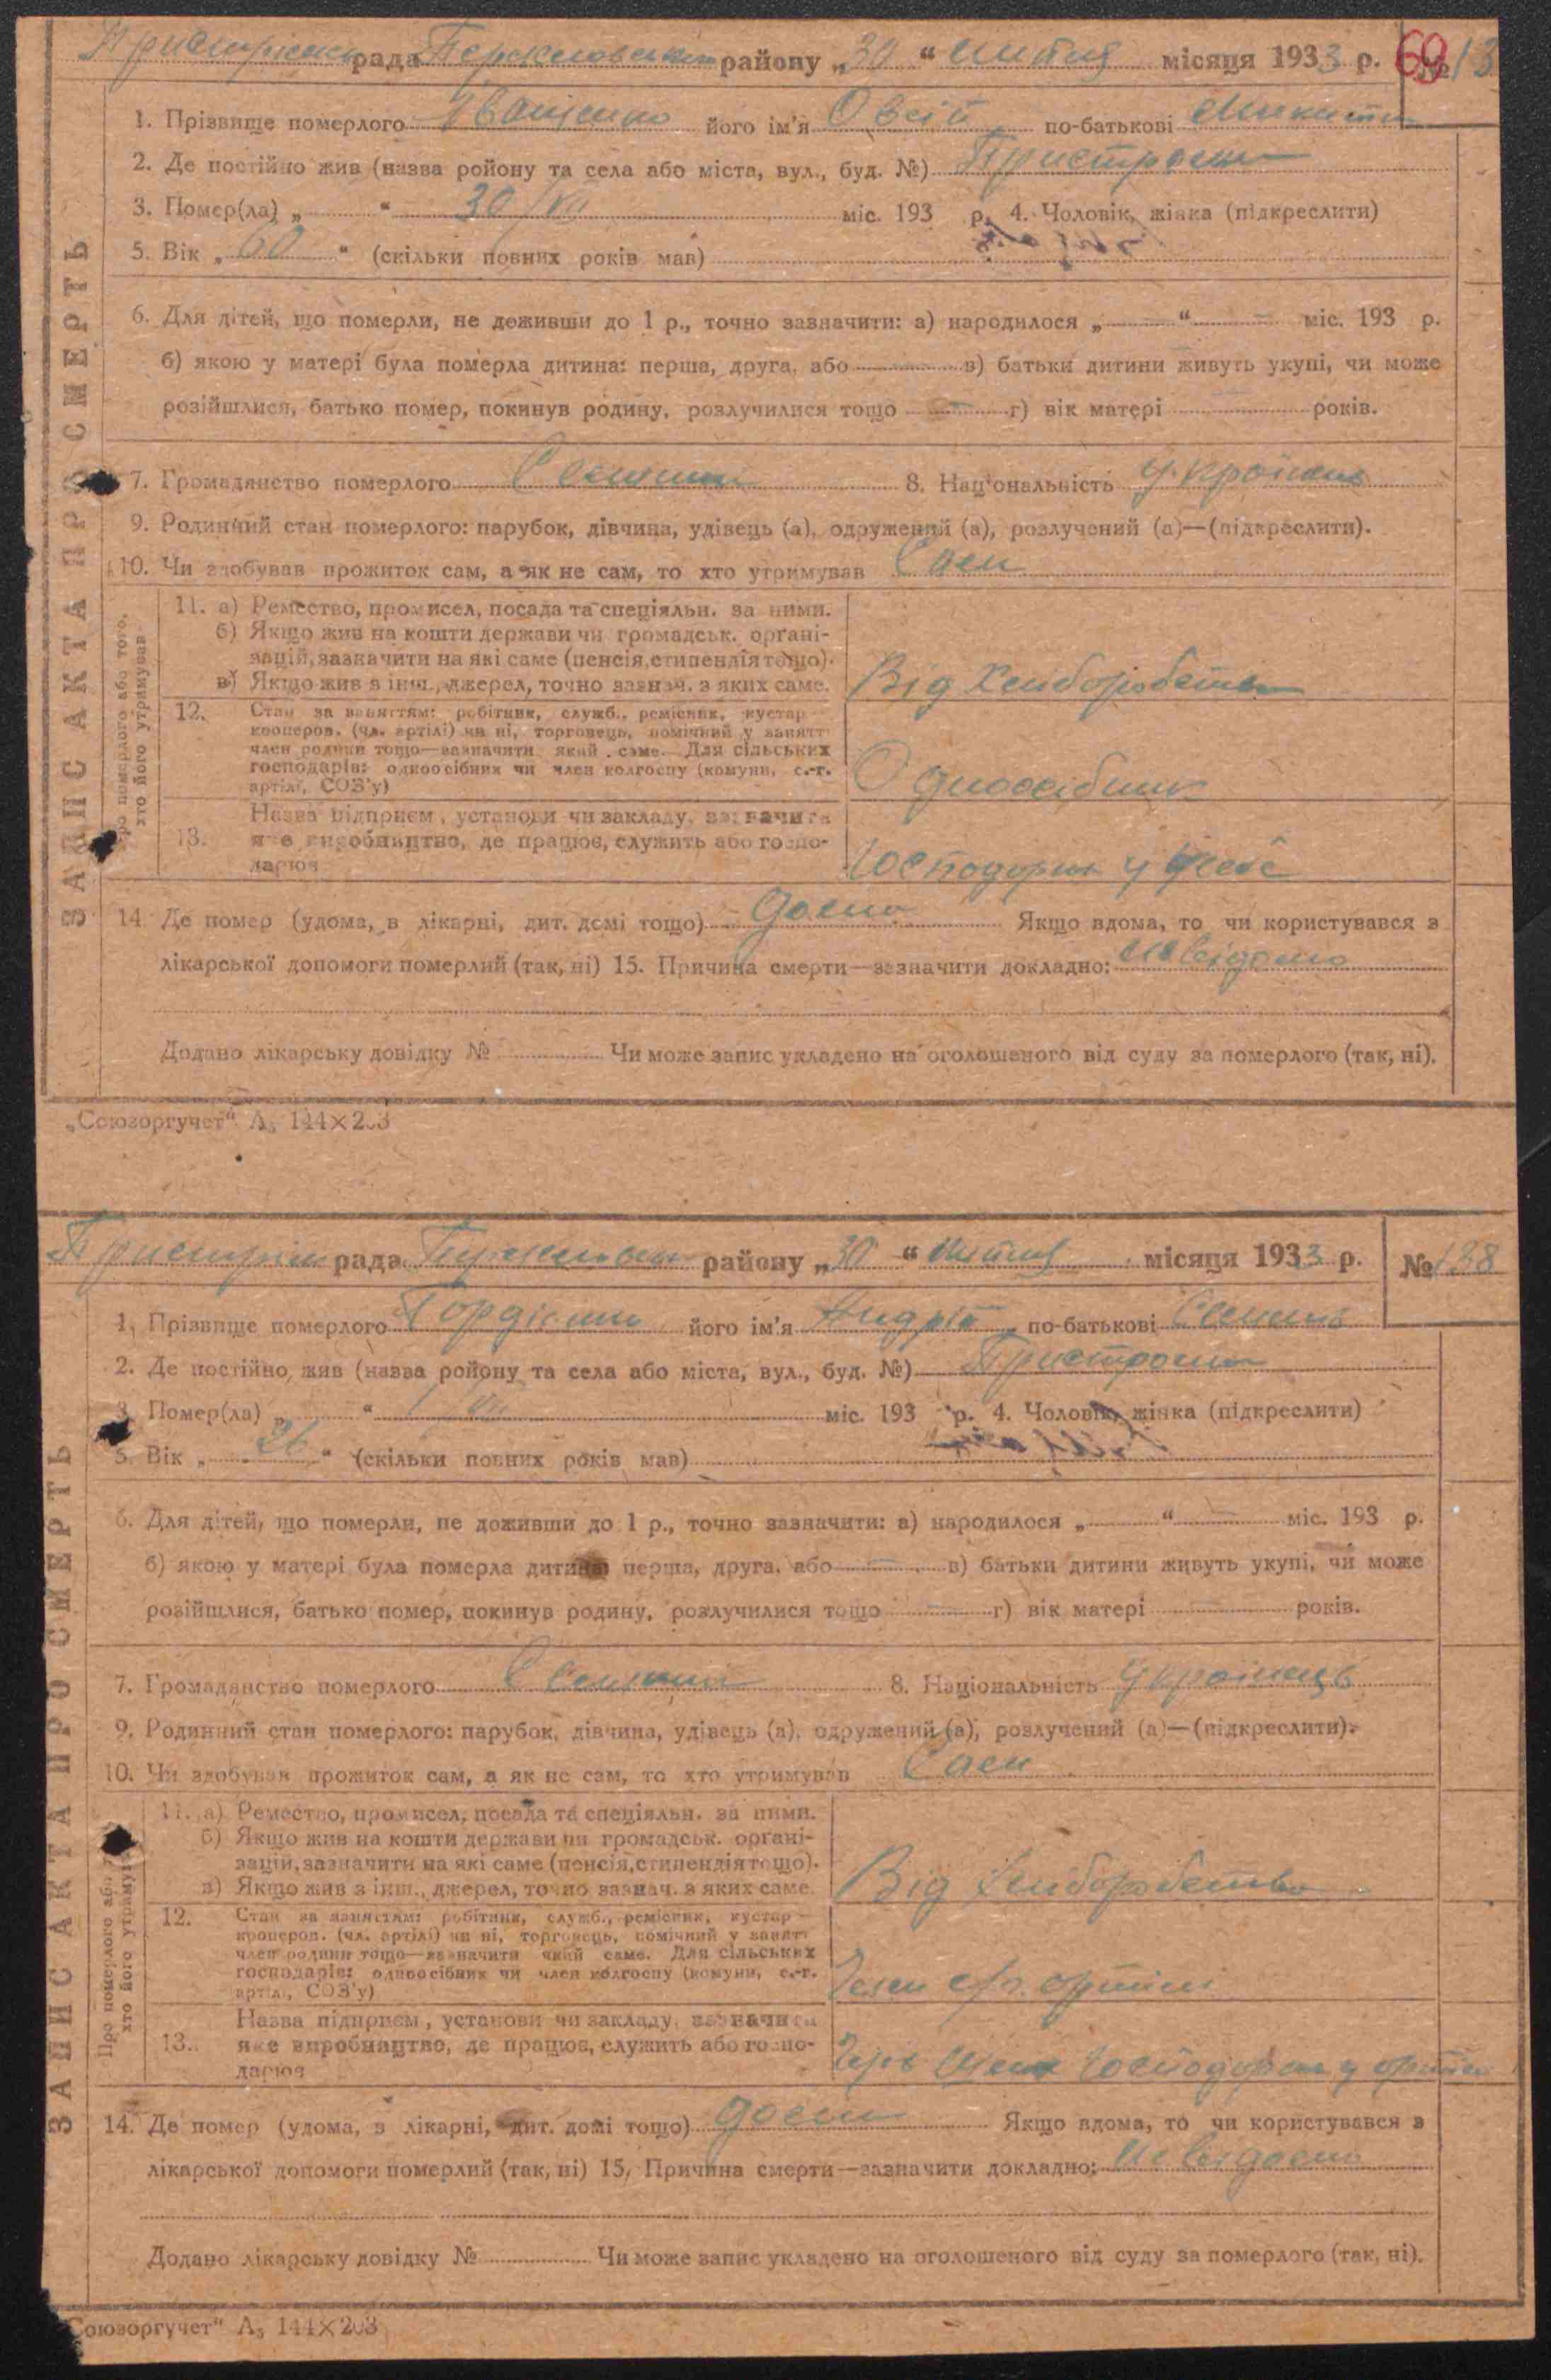 рада району „30“ липня місяця 1933 р. 69 № 13
1. Прізвище померлого Іващенко його ім'я Овсій по-батькові Микит
2. Де постійно жив (назва ройону та села або міста, вул., буд. №) Пристроми
3. Помер(ла) „ “ 30/VII міс. 193 р. 4. Чоловік, жінка (підкреслити)
5. Вік „60“ (скільки повних років мав)
6. Для дітей, що померли, не доживши до 1 р., точно зазначити: а) народилося „—“ — міс. 193 р.
б) якою у матері була померла дитина: перша, друга, або — в) батьки дитини живуть укупі, чи може
розійшлися, батько помер, покинув родину, розлучилися тощо — г) вік матері — років.
7. Громадянство померлого 8. Національність Українець
9. Родинний стан померлого: парубок, дівчина, удівець (а), одружений (а), розлучений (а)—(підкреслити).
10. Чи здобував прожиток сам, а як не сам, то хто утримував Сам
ЗАПИС АКТА ПРО СМЕРТЬ
Про померлого або того,
хто його утримував
11. а) Ремество, промисел, посада та спеціяльн. за ними.
б) Якщо жив на кошти держави чи громадськ. органі-
зацій, зазначити на які саме (пенсія, стипендія тощо).
в) Якщо жив з інш., джерел, точно зазнач. з яких саме.
Від хліборобства
12. Стан за заняттям: робітник, служб., ремісник, кустар
кооперов. (чл. артілі) чи ні, торговець, помічний у занятт
член родини тощо—зазначити який саме. Для сільських
господарів: одноосібник чи член колгоспу (комуни, с.-г.
артілі, СОЗ'у)
Одноосібник
13. Назва підприєм, установи чи закладу, зазначити
яке виробництво, де працює, служить або госпо-
дарює
Господарив у себе
14. Де помер (удома, в лікарні, дит. домі тощо) дома Якщо вдома, то чи користувався з
лікарської допомоги померлий (так, ні) 15. Причина смерти—зазначити докладно: невідомо
Додано лікарську довідку № Чи може запис укладено на оголошеного від суду за померлого (так, ні).
„Союзоргучет“ А₅ 144×203
рада району „30“ липня місяця 1933 р. № 138
1. Прізвище померлого Гордієнко його ім'я Андрій по-батькові Семенів
2. Де постійно жив (назва ройону та села або міста, вул., буд. №) Пристроми
3. Помер(ла) „ “ міс. 193 р. 4. Чоловік, жінка (підкреслити)
5. Вік „26“ (скільки повних років мав)
6. Для дітей, що померли, не доживши до 1 р., точно зазначити: а) народилося „ “ — міс. 193 р.
б) якою у матері була померла дитина перша, друга, або — в) батьки дитини живуть укупі, чи може
розійшлися, батько помер, покинув родину, розлучилися тощо — г) вік матері — років.
7. Громадянство померлого 8. Національність Українець
9. Родинний стан померлого: парубок, дівчина, удівець (а), одружений (а), розлучений (а)—(підкреслити).
10. Чи здобував прожиток сам, а як не сам, то хто утримував Сам
ЗАПИС АКТА ПРО СМЕРТЬ
Про померлого або
хто його утримув
11. а) Ремество, промисел, посада та спеціяльн. за ними.
б) Якщо жив на кошти держави чи громадськ. органі-
зацій, зазначити на які саме (пенсія, стипендія тощо).
в) Якщо жив з інш., джерел, точно зазнач. з яких саме.
Від хліборобства
12. Стан за заняттям: робітник, служб., ремісник, кустар
кооперов. (чл. артілі) чи ні, торговець, помічний у занятт
член родини тощо—зазначити який саме. Для сільських
господарів: одноосібник чи член колгоспу (комуни, с.-г.
артілі, СОЗ'у)
Член с/г. артілі
13. Назва підприєм, установи чи закладу, зазначити
яке виробництво, де працює, служить або госпо-
дарює
Господарив у артілі
14. Де помер (удома, в лікарні, дит. домі тощо) дома Якщо вдома, то чи користувався з
лікарської допомоги померлий (так, ні) 15. Причина смерти—зазначити докладно: невідомо
Додано лікарську довідку № Чи може запис укладено на оголошеного від суду за померлого (так, ні).
Союзоргучет“ А₅ 144×203